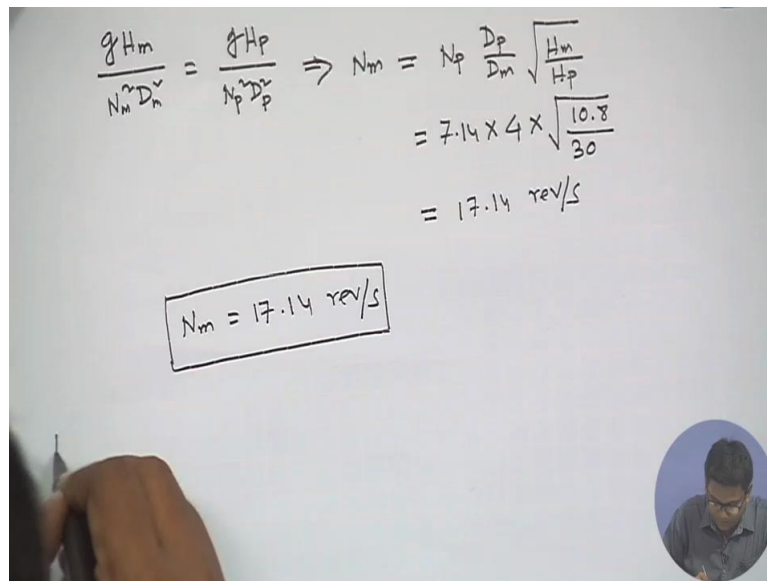 gHm / Nm²Dm² = gHp / Np²Dp² ⇒ Nm = Np Dp/Dm √(Hm/Hp)
= 7.14 × 4 × √(10.8/30)
= 17.14 rev/s
Nm = 17.14 rev/s